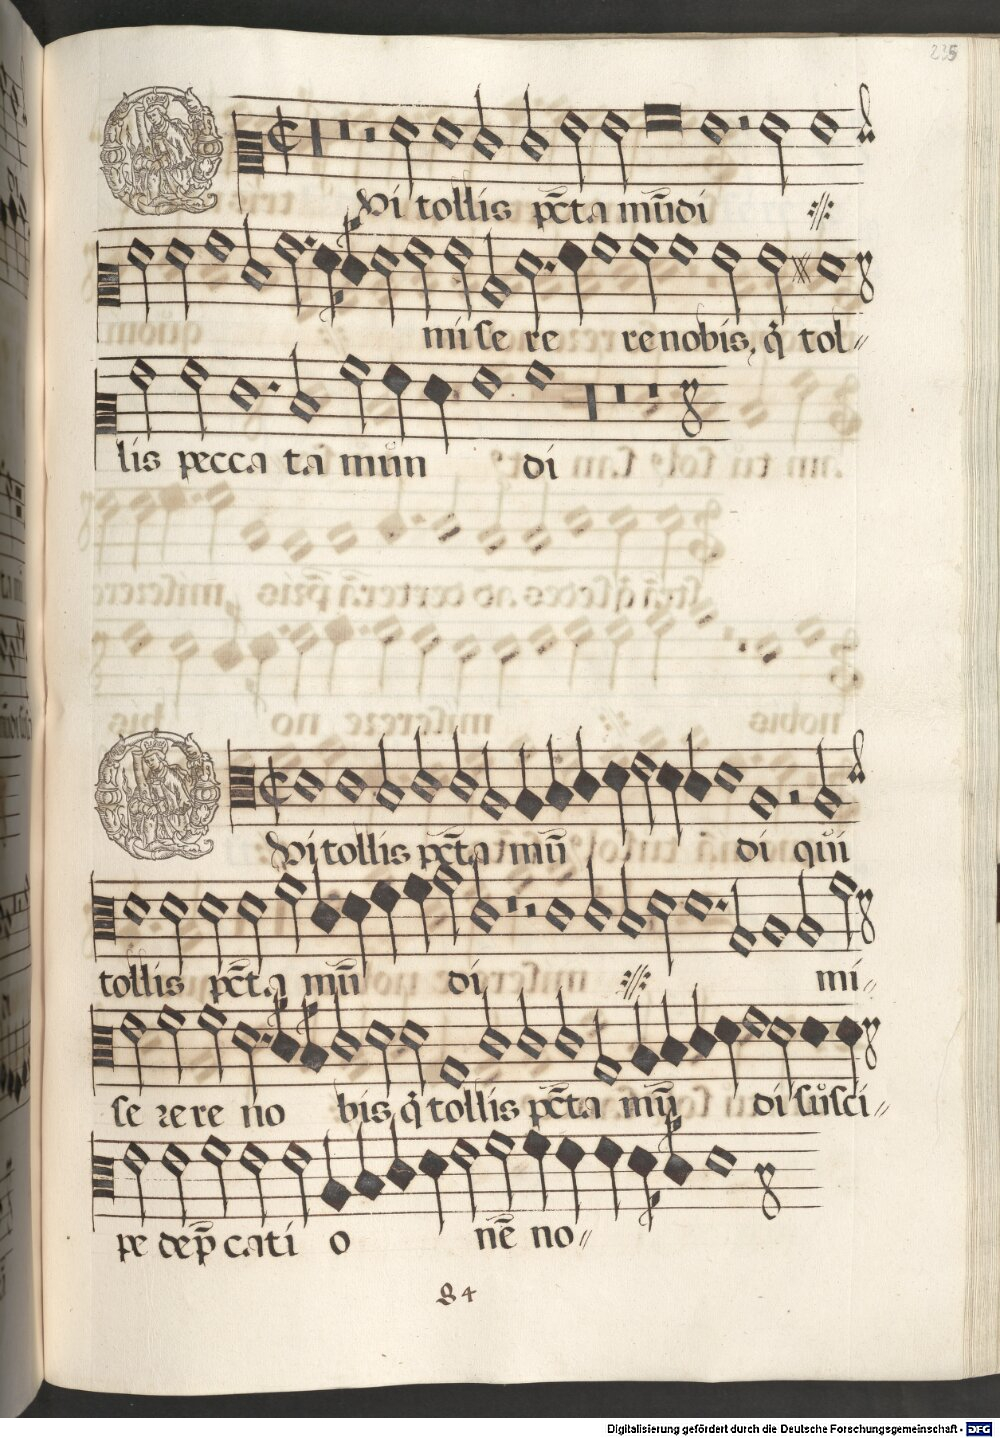 235
Qui tollis pc̄ta mūdi :||:
mi se re re nobis, q̇ tol〃
lis pecca ta můn di
Qui tollis pc̄ta mū di qůi
tollis pc̄ta mū di :||: mi〃
se re re no bis q̇ tollis pc̄ta mū di sůsci〃
pe dep̄ cati o nē no〃
84
Digitalisierung gefördert durch die Deutsche Forschungsgemeinschaft - DFG